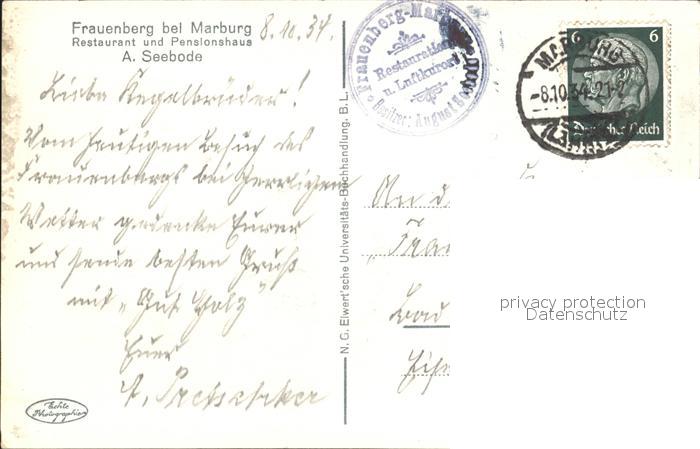 Frauenberg bei Marburg
Restaurant und Pensionshaus
A. Seebode
8.10.34.
Liebe Kegelbrüder!
Vom heutigen Besuch des
Frauenbergs bei herrlichem
Wetter gedenke Eurer
und sende besten Gruß
mit „Gut Holz"
Euer
A.
Echte Photographie
N. G. Elwert'sche Universitäts-Buchhandlung, B. L.
Frauenberg-Marburg
Restauration
u. Luftkurort
Besitzer: August
MARBURG
-8.10.34.21-2
6 6
Deutsches Reich
An d
„
Bad
privacy protection
Datenschutz